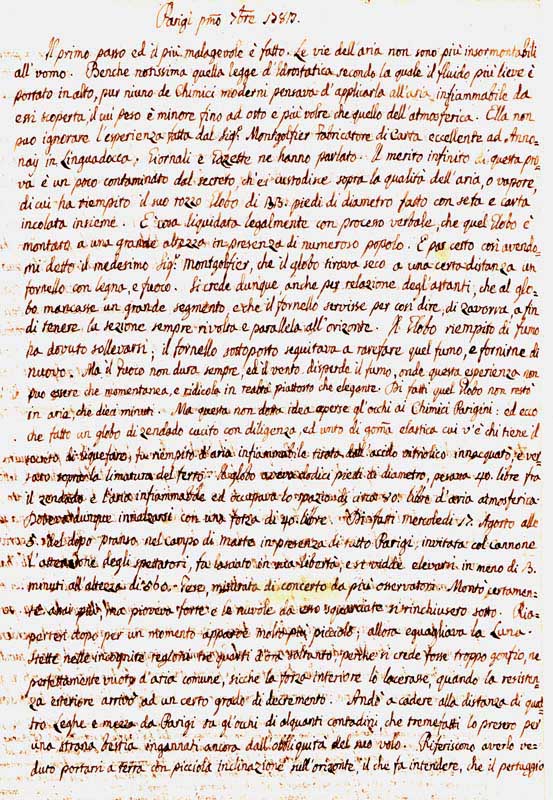 Parigi pmo 7bre 1783.
Il primo passo ed il più malagevole è fatto. Le vie dell'aria non sono più insormontabili
all'uomo. Benche notissima quella legge d'Idrostatica secondo la quale il fluido più lieve è
portato in alto, pur niuno de Chimici moderni pensava d'appliarla all'aria infiammabile da
essi scoperta, il cui peso è minore fino ad otto e più volte che quello dell'atmosferica. Ella non
può ignorare l'esperienza fatta dal Sigr. Montgolfier Fabricatore di Carta eccellente ad Anno-
nay in Linguadocca; Giornali e Gazette ne hanno parlato. Il merito infinito di questa pro-
va è un poco contaminato dal secreto, ch'ei custodisce sopra la qualità dell'aria, o vapore,
di cui ha riempito il suo rozzo Globo di 33. piedi di diametro fatto con seta e carta
incolata insieme. È cosa liquidata legalmente con proceso verbale, che quel Globo è
montato a una grande altezza in presenza di numeroso popolo. E pur certo così avendo-
mi detto il medesimo Sigr. Montgolfier, che il globo tirava seco a una certa distanza un
fornello con legna, e fuoco. Si crede dunque, anche per relazione degl'astanti, che al glo-
bo mancasse un grande segmento, e che il fornello servisse per così dire, di zavorra, a fin
di tenere la sezione sempre rivolta e parallela all'orizonte. Il Globo riempito di fumo
ha dovuto sollevarsi; il fornello sottoposto seguitava a rarefare quel fumo, e fornirne di
nuovo. Ma il fuoco non dura sempre, ed il vento disperde il fumo, onde questa esperienza non
può essere che momentanea, e ridicola in realtà piuttosto che elegante. Di fatti quel Globo non restò
in aria che dieci minuti. Ma questa non dotta idea aperse gl'occhi ai Chimici Parigini: ed ecco
che fatto un globo di zendado cucito con diligenza, ed unto di gomā elastica cui v'è chi tiene il
secreto di liquefare, fu riempito d'aria infiammabile tirata dall'acido vitriolico innacquato, e ver-
sato sopra la limatura del ferro. Il globo aveva dodici piedi di diametro, pesava 40. libre fra
il zendado e l'aria infiammabile ed occupava lo spazio di circa 80. libre d'aria atmosferica
Poteva dunque innalzarsi con una forza di 40. libre. Difatti mercoledi 27. Agosto alle
5. del dopo pranzo nel campo di marte in presenza di tutto Parigi, invitata col Cannone
l'attenzione degli spettatori, fu lasciato in sua libertà, e si vidde elevarsi in meno di 3.
minuti all'altezza di 560. Tese, misurata di concerto da più osservatori. Montò certamen-
te anzi più, ma pioveva forte e le nuvole da esso squarciate si rinchiusero sotto. Ria-
pertesi dopo per un momento apparve molto più piccolo; allora eguagliava la Luna.
Stette nelle incognite regioni tre quarti d'ora soltanto, perche si crede fosse troppo gonfio, ne
perfettamente vuoto d'aria comune, sicche la forza interiore lo lacerasse, quando la resisten-
za esteriore arrivò ad un certo grado di decremento. Andò a cadere alla distanza di quat-
tro Leghe e mezza da Parigi su gl'occhi di alquanti contadini, che tremefatti lo presero per
una strana bestia ingannati ancora dall'obbliquità del suo volo. Riferiscono averlo ve-
duto portarsi a terra con picciola inclinazione sull'orizonte, il che fa intendere, che il pertuggio